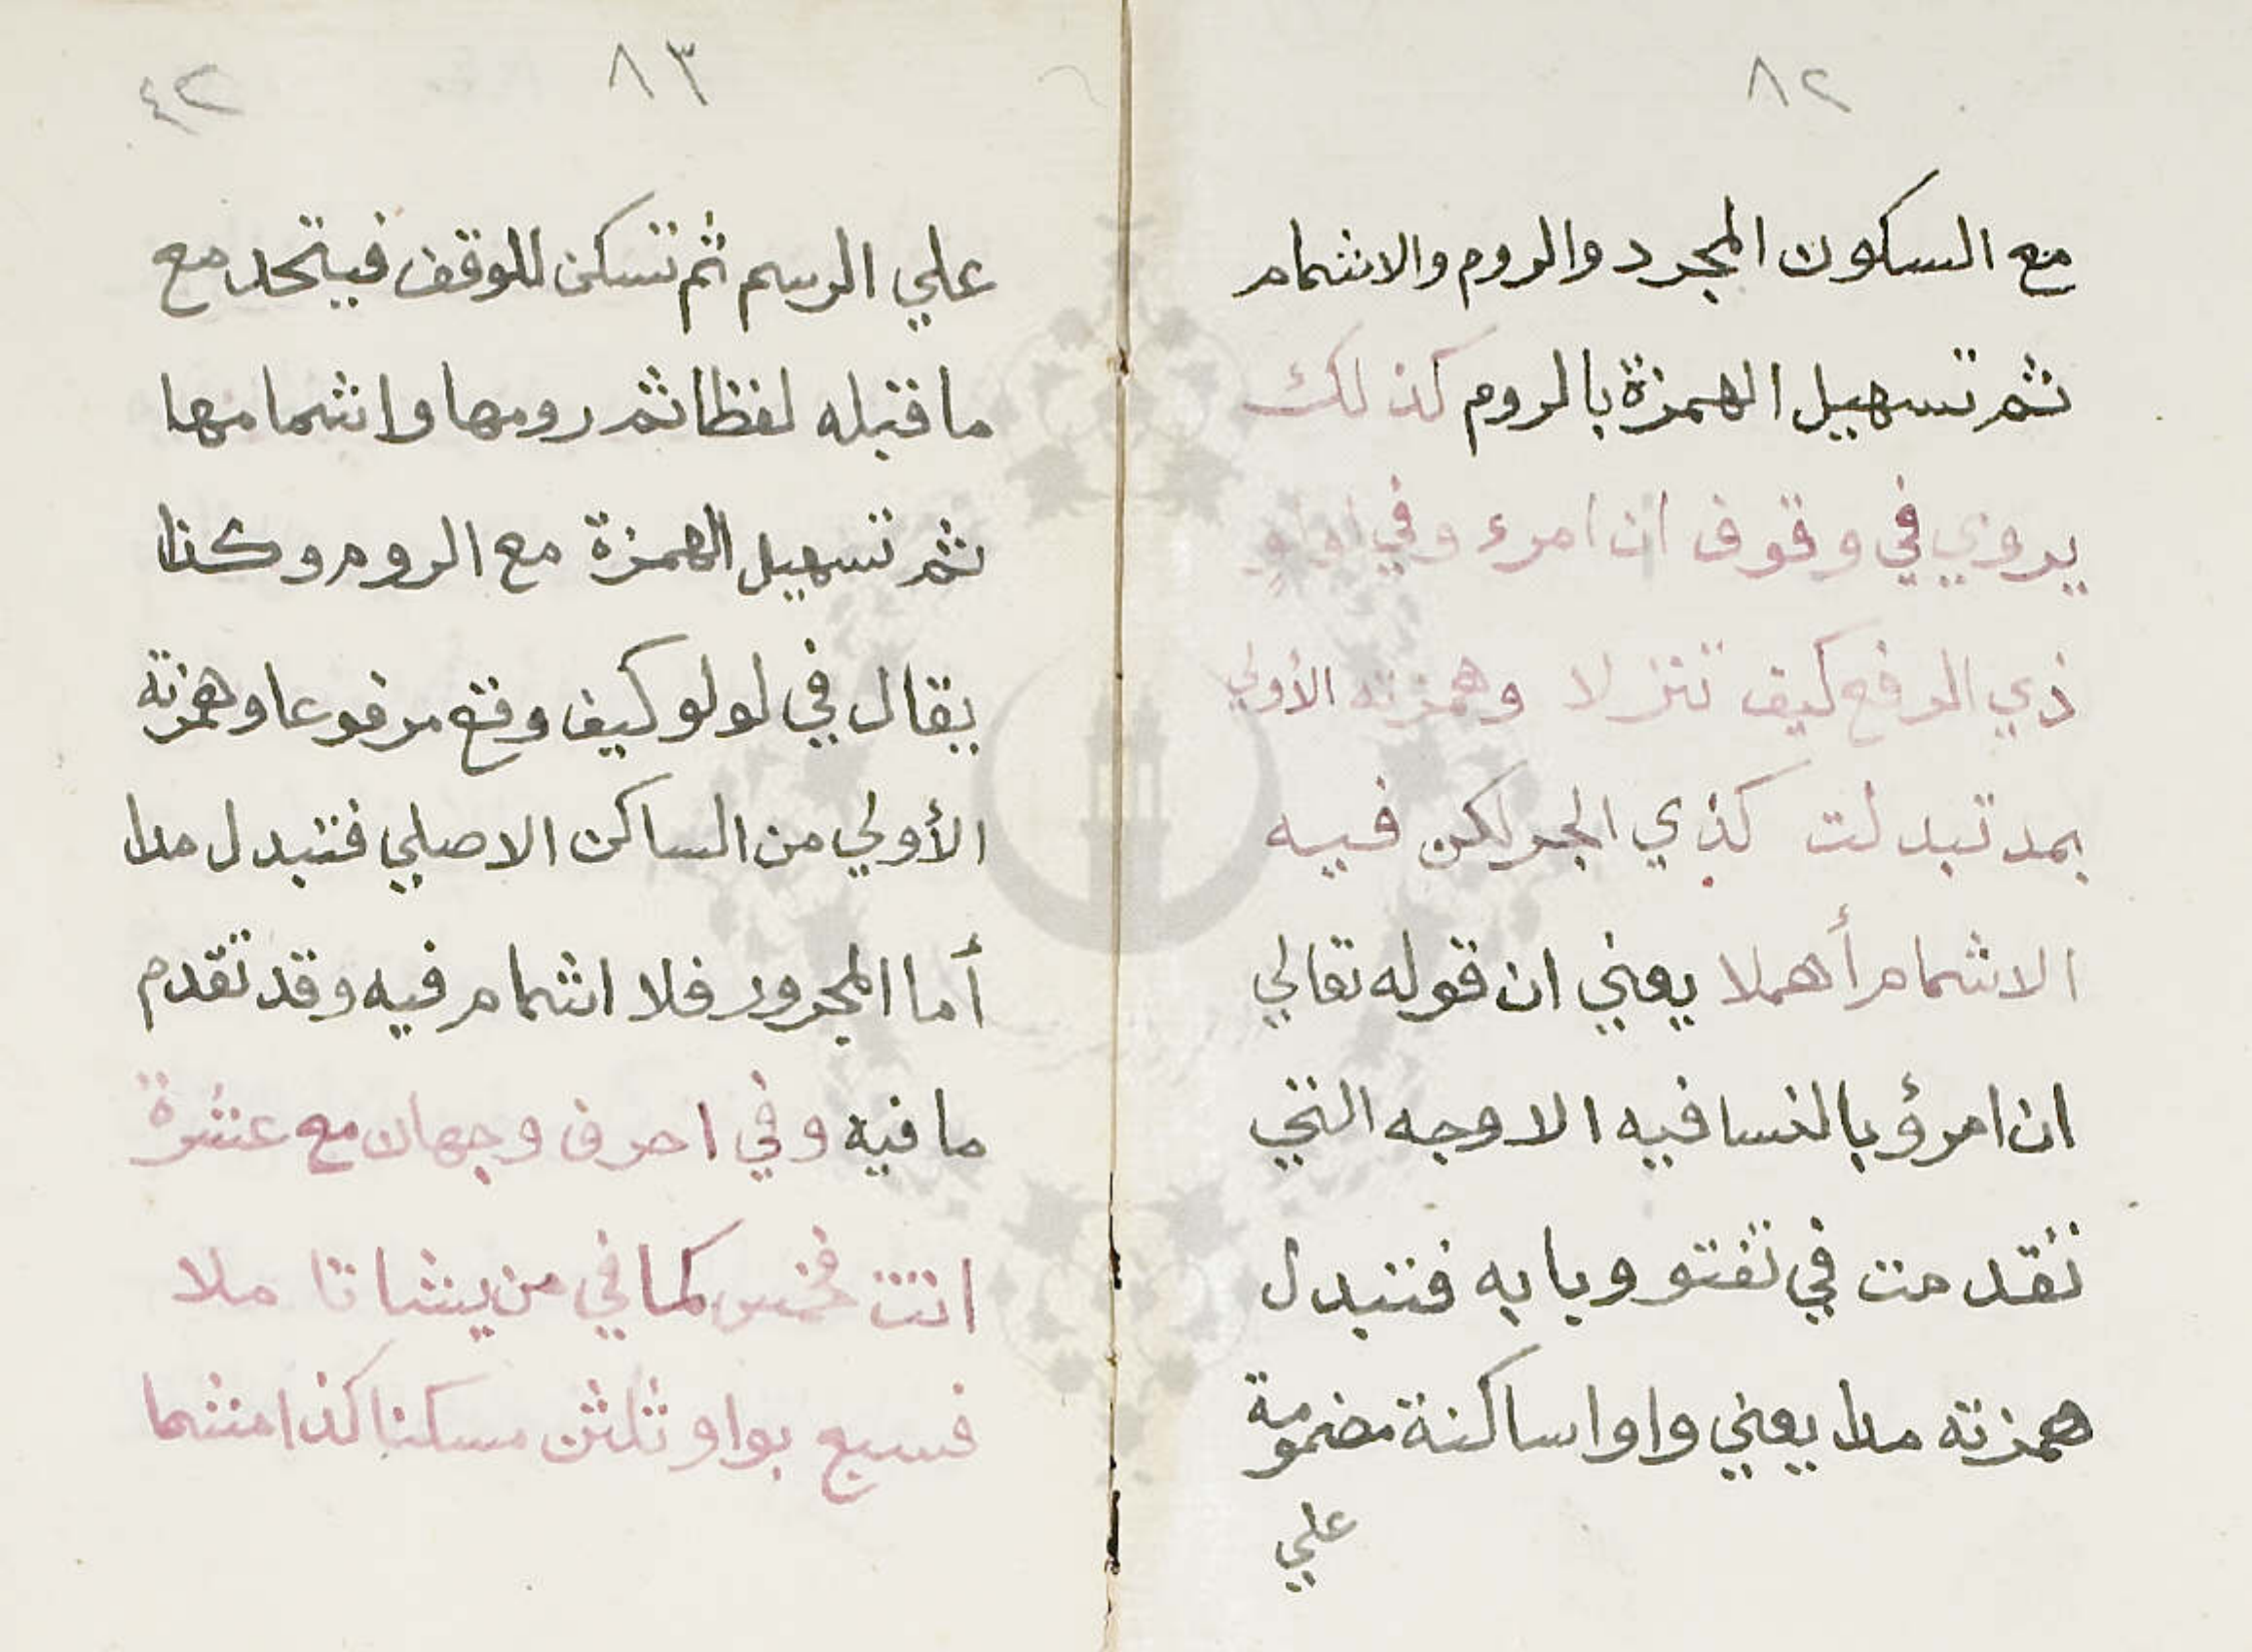 ٨٢
مع السكون المجرد والروم والاشمام
ثم تسهيل الهمزة بالروم كذلك
يروي في وقوف ان امرء وفي
ذي الرفع كيف تنزلا وهمزته الأولي
بمد تبدلت كذي الجر لكن فيه
الاشمام أهملا يعني ان قوله تعالي
ان امرؤ بالنسا فيه الاوجه التي
تقدمت في تفتو وبابه فتبدل
همزته مدا يعني واوا ساكنة مضمومة
علي
٨٣
٤٢
علي الرسم ثم تسكن للوقف فيتحد مع
ما قبله لفظا ثم رومها واشمامها
ثم تسهيل الهمزة مع الروم وكذا
يقال في لولو كيف وقع مرفوعا وهمزته
الأولي من الساكن الاصلي فتبدل مدا
أما المجرور فلا اشمام فيه وقد تقدم
ما فيه وفي احرف وجهان مع عشرة
اتت فخمس كما في من يشا تا ملا
فسبع بواو ثلثن مسكنا كذا مشما